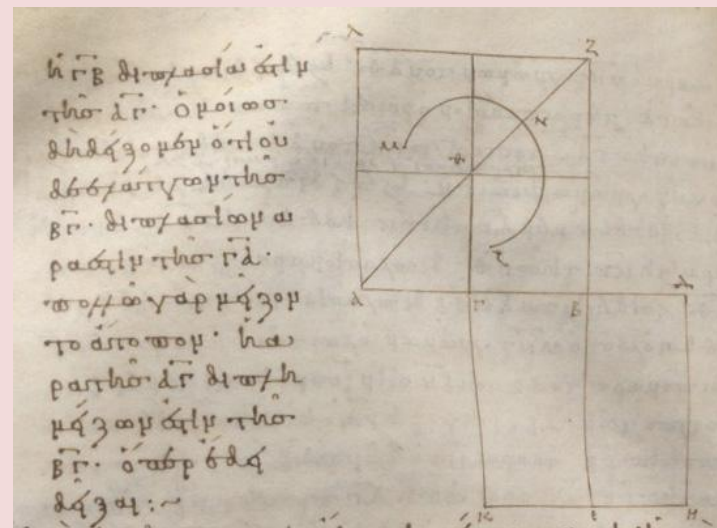 ἡ ΓΒ διπλασίων ἐστὶν
τῆς ΑΓ· ὁμοίως
δὴ δείξομεν ὅτι οὐ
δὲ ἐλάττων τῆς
ΒΓ· διπλασίων ἄ
ρα ἐστὶν τῆς ΓΑ·
πολλῶ γὰρ μεῖζον
τὸ ἄτοπον· ἡ ἄ
ρα τῆς ΑΓ διπλῆ
μείζων ἐστὶν τῆς
ΒΓ· ὅπερ ἔδει
δεῖξαι:~
Ζ
Μ
Α Γ Β Δ
Κ Ε Η